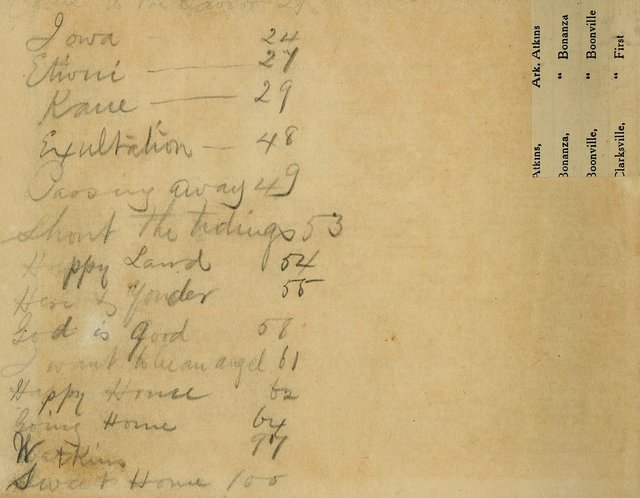 Iowa 24
Ethoni — 27
Kane — 29
Exultation — 48
Passing away 49
Shout the tidings 53
Happy Land 54
Here & Yonder 55
God is good 58
I want to be an angel 61
Happy Home 62
Going Home 64
Watkins 97
Sweet Home 100
Atkins, Ark. Atkins
Bonanza, " Bonanza
Boonville, " Boonville
Clarksville, " First